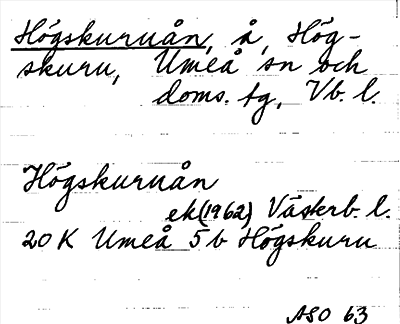 Högskuruån, å, Hög-
skuru, Umeå sn och
doms. tg, Vb. l.
Högskuruån
ek(1962) Västerb. l.
20 K Umeå 5 b Högskuru
ASO 63